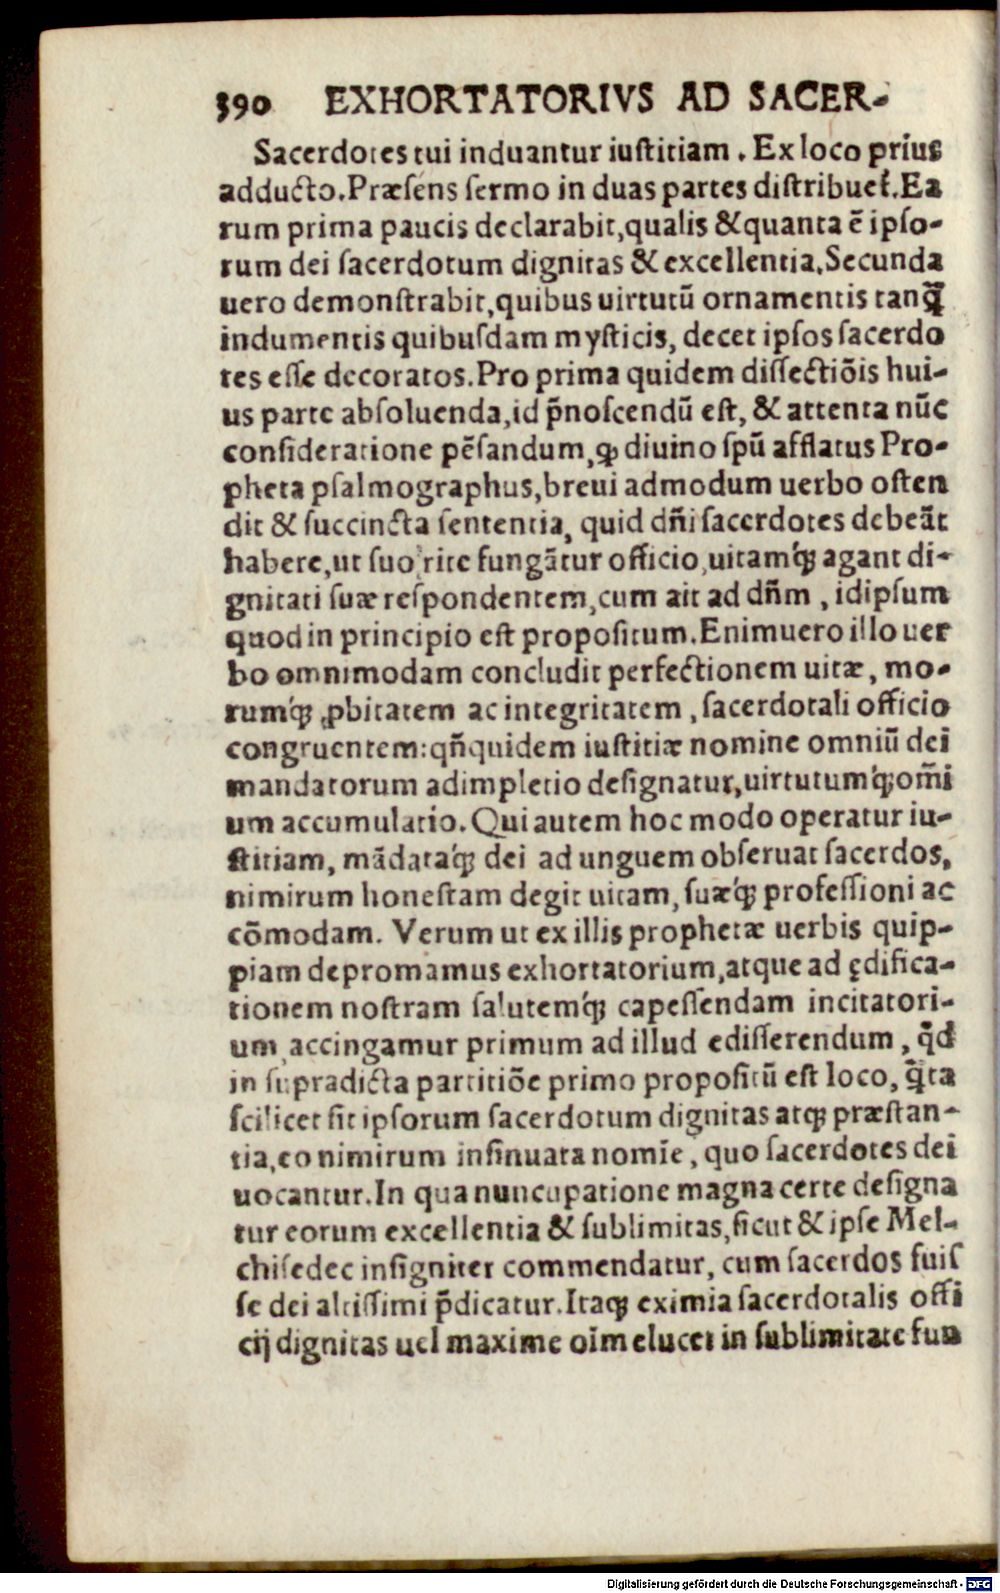 390 EXHORTATORIVS AD SACER-
Sacerdotes tui induantur iustitiam. Ex loco prius
adducto. Præsens sermo in duas partes distribuet̃. Ea
rum prima paucis declarabit, qualis & quanta ẽ ipso-
rum dei sacerdotum dignitas & excellentia. Secunda
uero demonstrabit, quibus uirtutũ ornamentis tanq̃
indumentis quibusdam mysticis, decet ipsos sacerdo
tes esse decoratos. Pro prima quidem dissectiõis hui-
us parte absoluenda, id p̃noscendũ est, & attenta nũc
consideratione pẽsandum, ꝙ diuino spũ afflatus Pro-
pheta psalmographus, breui admodum uerbo osten
dit & succincta sententia, quid dñi sacerdotes debeãt
habere, ut suo rite fungãtur officio, uitamq́ꝫ agant di-
gnitati suæ respondentem, cum ait ad dñm, idipsum
quod in principio est propositum. Enimuero illo uer
bo omnimodam concludit perfectionem uitæ, mo-
rumq́ꝫ ꝓbitatem ac integritatem, sacerdotali officio
congruentem: qñquidem iustitiæ nomine omniũ dei
mandatorum adimpletio designatur, uirtutumq́ꝫ om̃i
um accumulatio. Qui autem hoc modo operatur iu-
stitiam, mãdataq́ꝫ dei ad unguem obseruat sacerdos,
nimirum honestam degit uitam, suæq́ꝫ professioni ac
cõmodam. Verum ut ex illis prophetæ uerbis quip-
piam depromamus exhortatorium, atque ad ędifica-
tionem nostram salutemq́ꝫ capessendam incitatori-
um, accingamur primum ad illud edisserendum, q̃d
in supradicta partitiõe primo propositũ est loco, q̃ta
scilicet sit ipsorum sacerdotum dignitas atqꝫ præstan-
tia, eo nimirum insinuata nomĩe, quo sacerdotes dei
uocantur. In qua nuncupatione magna certe designa
tur eorum excellentia & sublimitas, sicut & ipse Mel-
chisedec insigniter commendatur, cum sacerdos fuis
se dei altissimi p̃dicatur. Itaqꝫ eximia sacerdotalis offi
cij dignitas uel maxime oĩm elucet in sublimitate fun
Digitalisierung gefördert durch die Deutsche Forschungsgemeinschaft - DFG